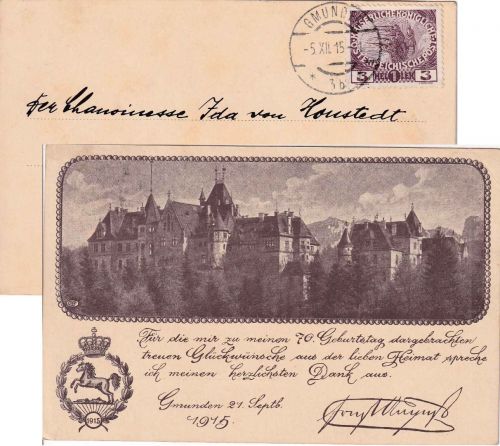 GMUND
-5.XII.15
* 3b
3 HELLER 3
Der Chanoinesse Ida von Honstedt
Für die mir zu meinen 70. Geburtstag dargebrachten
treuen Glückwünsche aus der lieben Heimat spreche
ich meinen herzlichsten Dank aus.
Gmunden 21. Septb.
1915.
1915
Ernst August